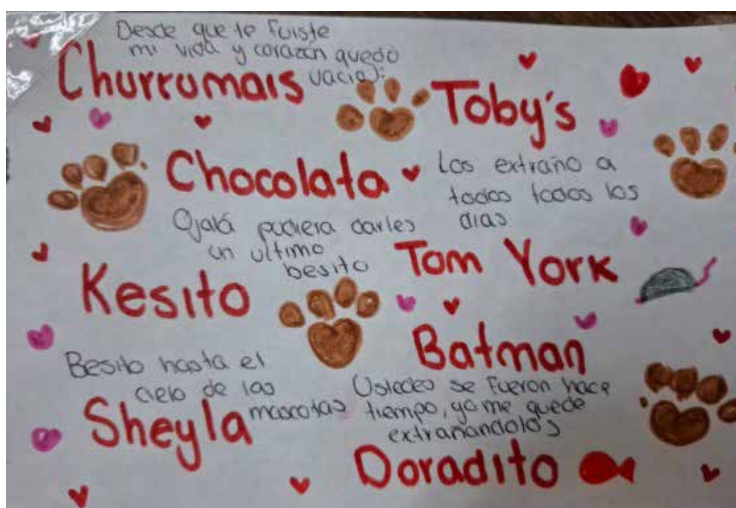 Desde que te fuiste
mi vida y corazón quedo
vacia ):
Churrumais
Toby's
Chocolata
Los extraño a
todos todos los
dias
Ojalá pudiera darles
un ultimo
besito
Tom York
Kesito
Batman
Besito hasta el
cielo de las
mascotas
Ustedes se fueron hace
tiempo, yo me quede
extrañandolos
Sheyla
Doradito